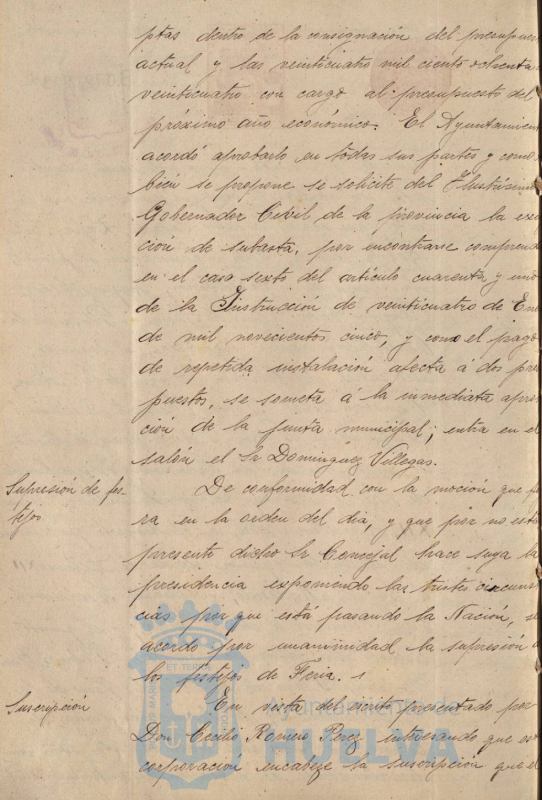 ptas dentro de la consignación del presupues
actual y las veinticuatro mil ciento ochenta
veinticuatro con cargo al presupuesto del
próximo año económico. El Ayuntamient
acordó aprobarlo en todas sus partes y como
bién se propone se solicite del Ilustrísimo
Gobernador Civil de la provincia la exe
ción de subasta, por incontrarse comprend
en el caso sexto del artículo cuarenta y uno
de la Instrucción de veinticuatro de Ene
de mil novecientos cinco, y como el pago
de repetida instalación afecta á dos pre
puestos, se someta á la inmediata apro
ción de la junta municipal; entra en el
salón el Sr Domínguez Villegas.
Supresión de fes-
tejos
De conformidad con la moción que fi
ra en la orden del día, y que por no está
presente dicho Sr Concejal hace suya la
presidencia exponiendo las tristes circuns
cias por que está pasando la Nación, se
acordó por unanimidad la supresión d
los festejos de Feria.
Suscripción
En vista del escrito presentado por
Don Cecilio Romero Perez interesando que est
corporación encabeze la suscripción que el
Ayuntamiento de
HUELVA